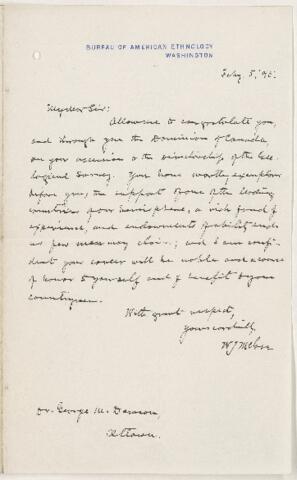 BUREAU OF AMERICAN ETHNOLOGY
WASHINGTON
My dear Sir:
Allow me to congratulate you,
and through you the Dominion of Canada,
on your accession to the directorship of the Geo-
logical Survey. You have worthy exemplars
before you, the support of one of the leading
countries of our hemisphere, a rich fund of
experience, and endowments of ability such
as few men may claim; and I am confi-
dent your career will be noble and a source
of honor to yourself and of benefit to your
countrymen.
With great respect,
Yours cordially,
W J McGee
Dr. George M. Dawson,
Ottawa.